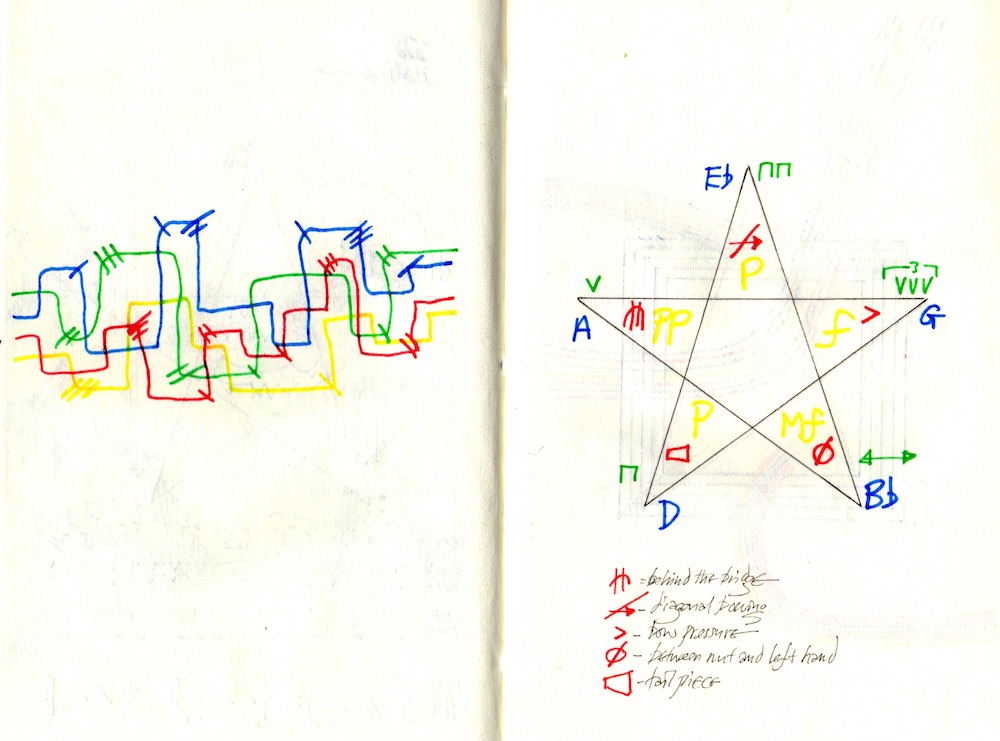 Eb
P
V
3
V V V
A
PP
f
>
G
P
Mf
D
Bb
= behind the bridge
- diagonal bowing
> - bow pressure
Ø - between nut and left hand
- tail piece